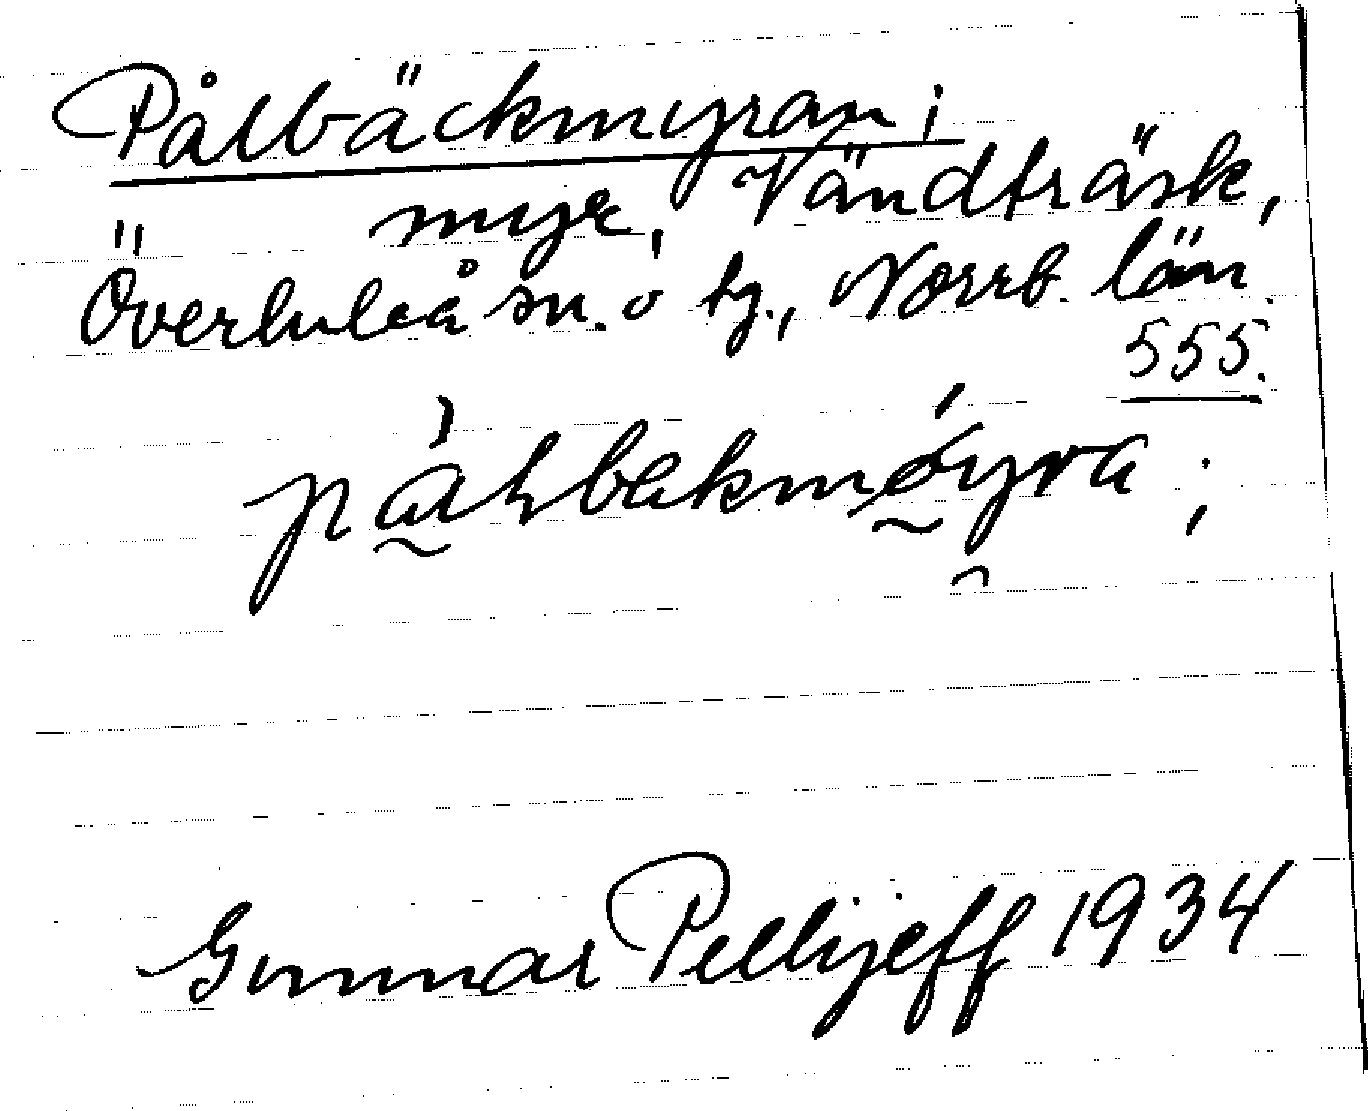 Pålbäckmyran;
myr, Vändträsk,
Överluleå sn. o tg., Norrb. län.
555.
Gunnar Pellijeff 1934